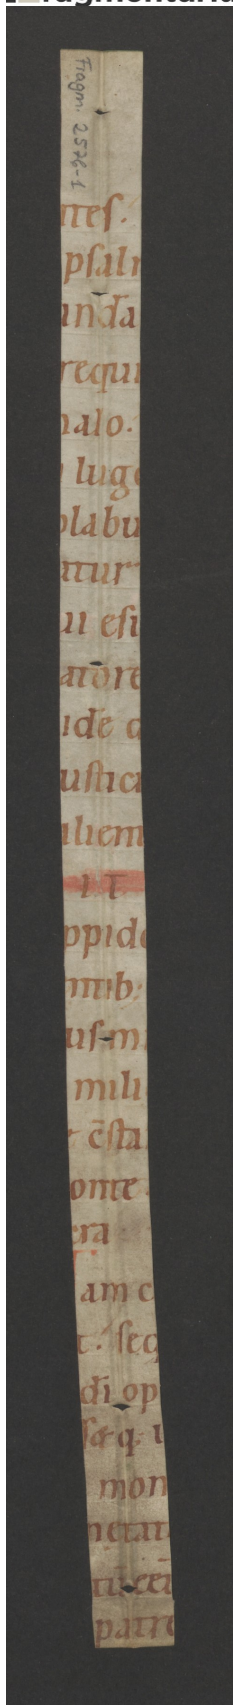 Fragm. 2576-1
ntes.
psalm
unda
requi
nalo.
luge
olabu
atur
ui esu
atore
ide
ustici
iliem
i t
ppido
ntib;
us m
mili
c̄sta
onte
era
am c
t. seq
di op
sæ q; i
mon
netati
patre